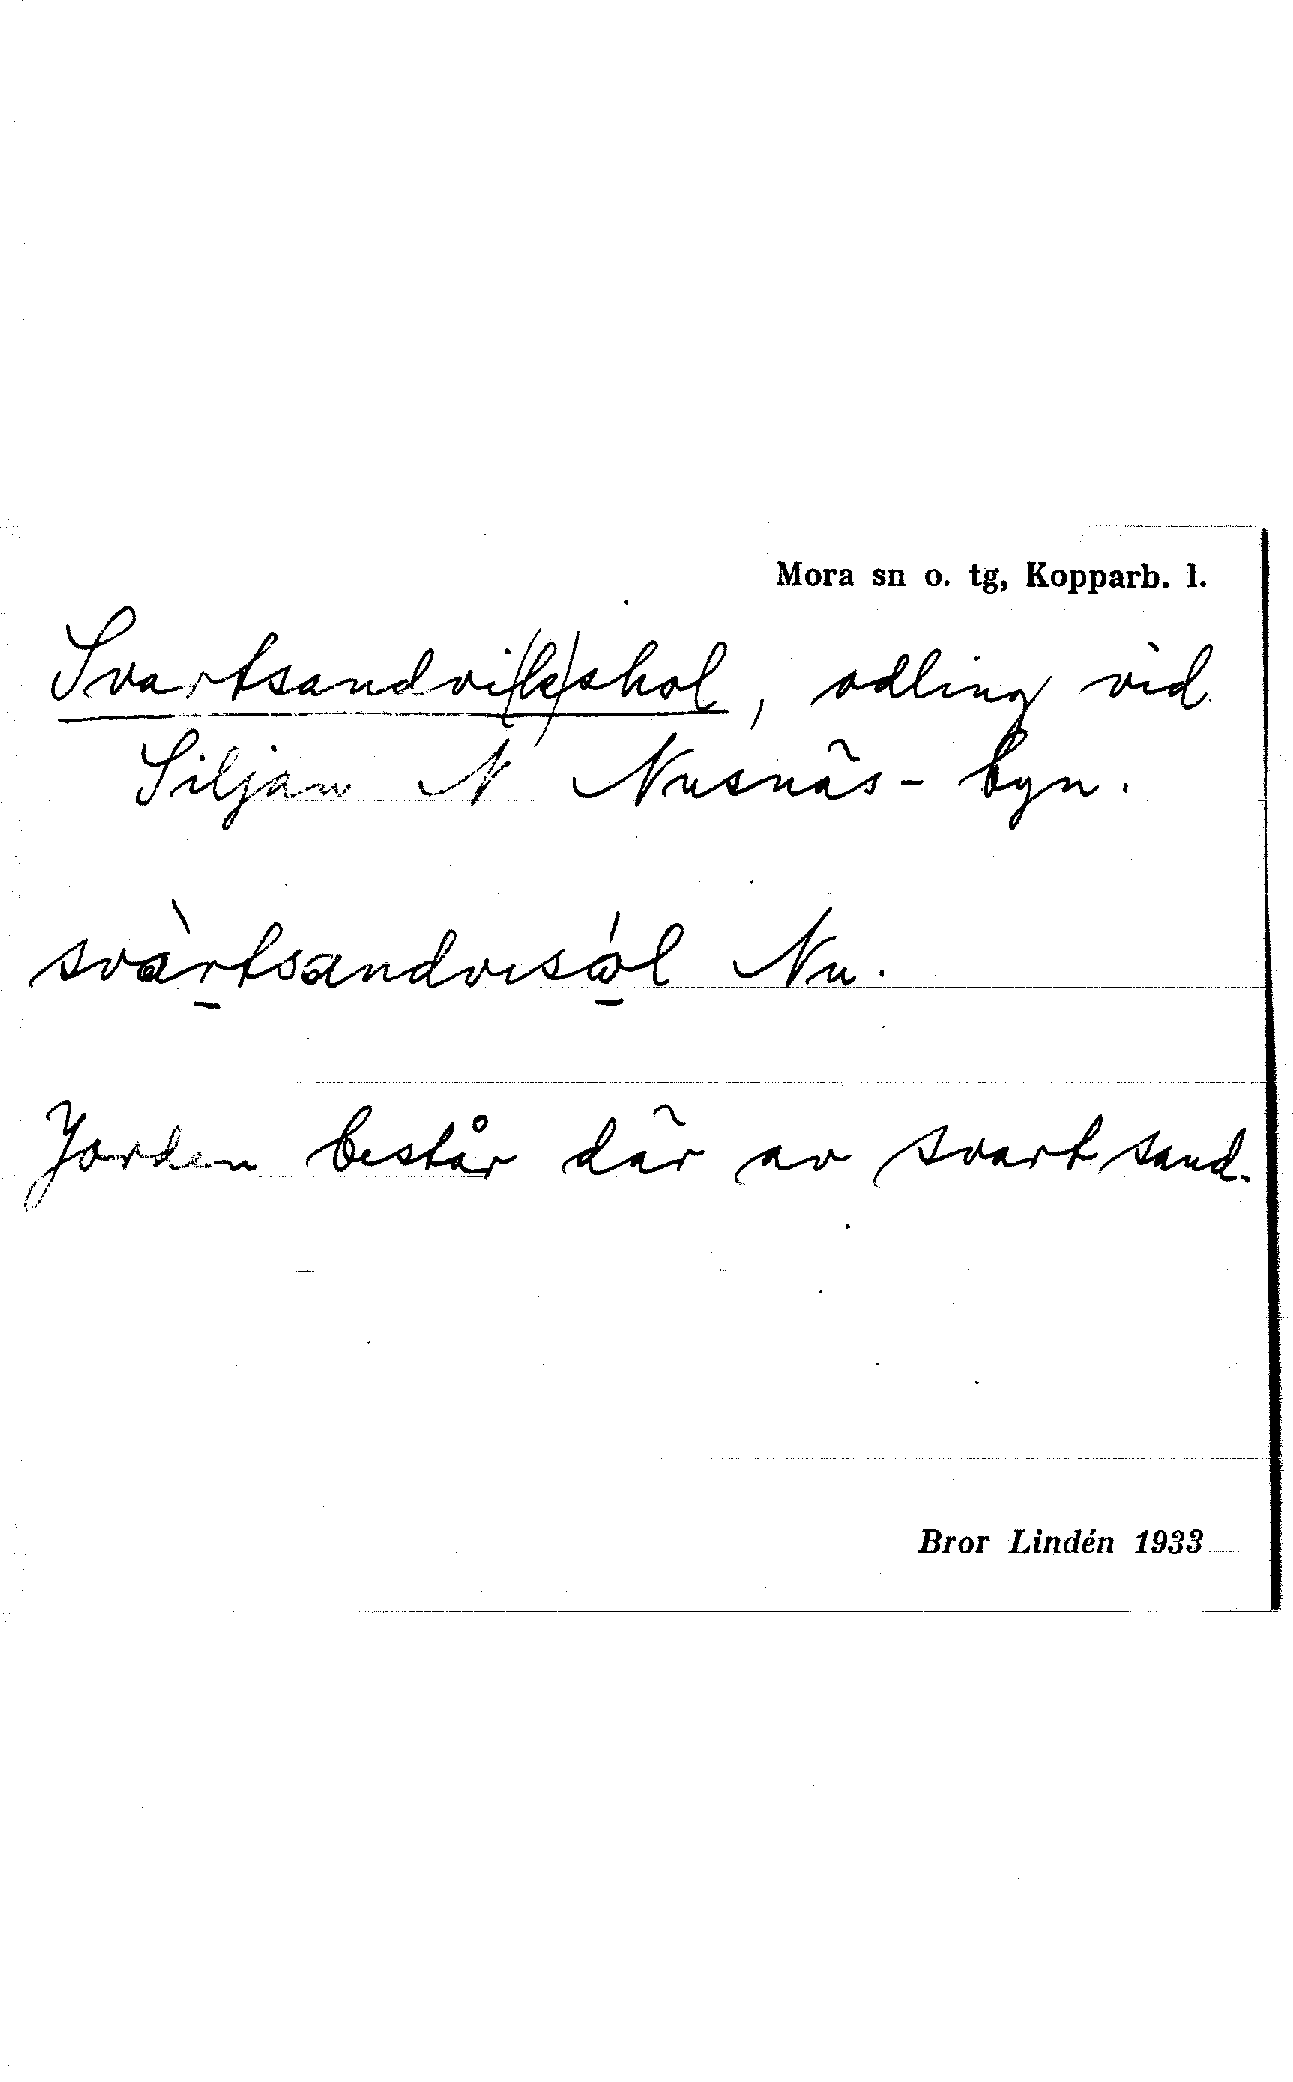 Mora sn o. tg, Kopparb. l.
Svartsandvi(k)shol, odling vid
Siljan N Nusnäs-byn.
svàrt̠sandvisώ̠l Nu.
Jorden består där av svart sand.
Bror Lindén 1933